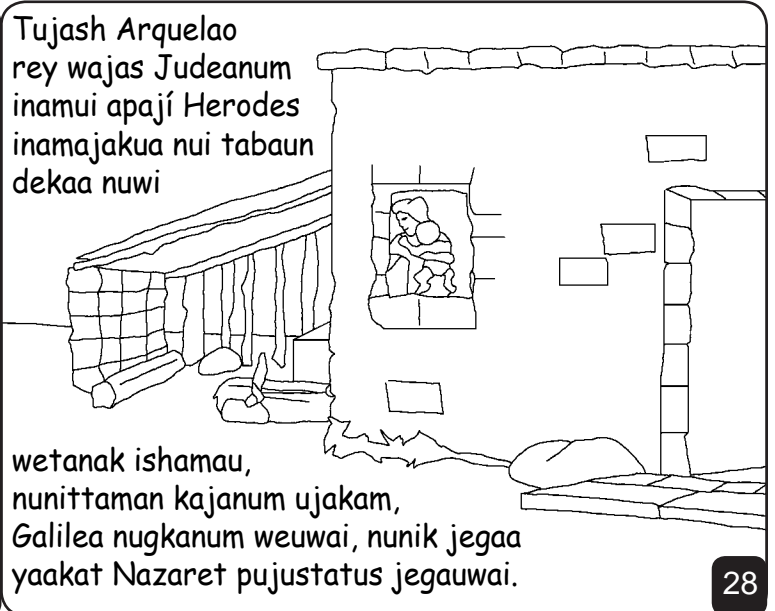 Tujash Arquelao
rey wajas Judeanum
inamui apají Herodes
inamajakua nui tabaun
dekaa nuwi
wetanak ishamau,
nunittaman kajanum ujakam,
Galilea nugkanum weuwai, nunik jegaa
yaakat Nazaret pujustatus jegauwai.
28